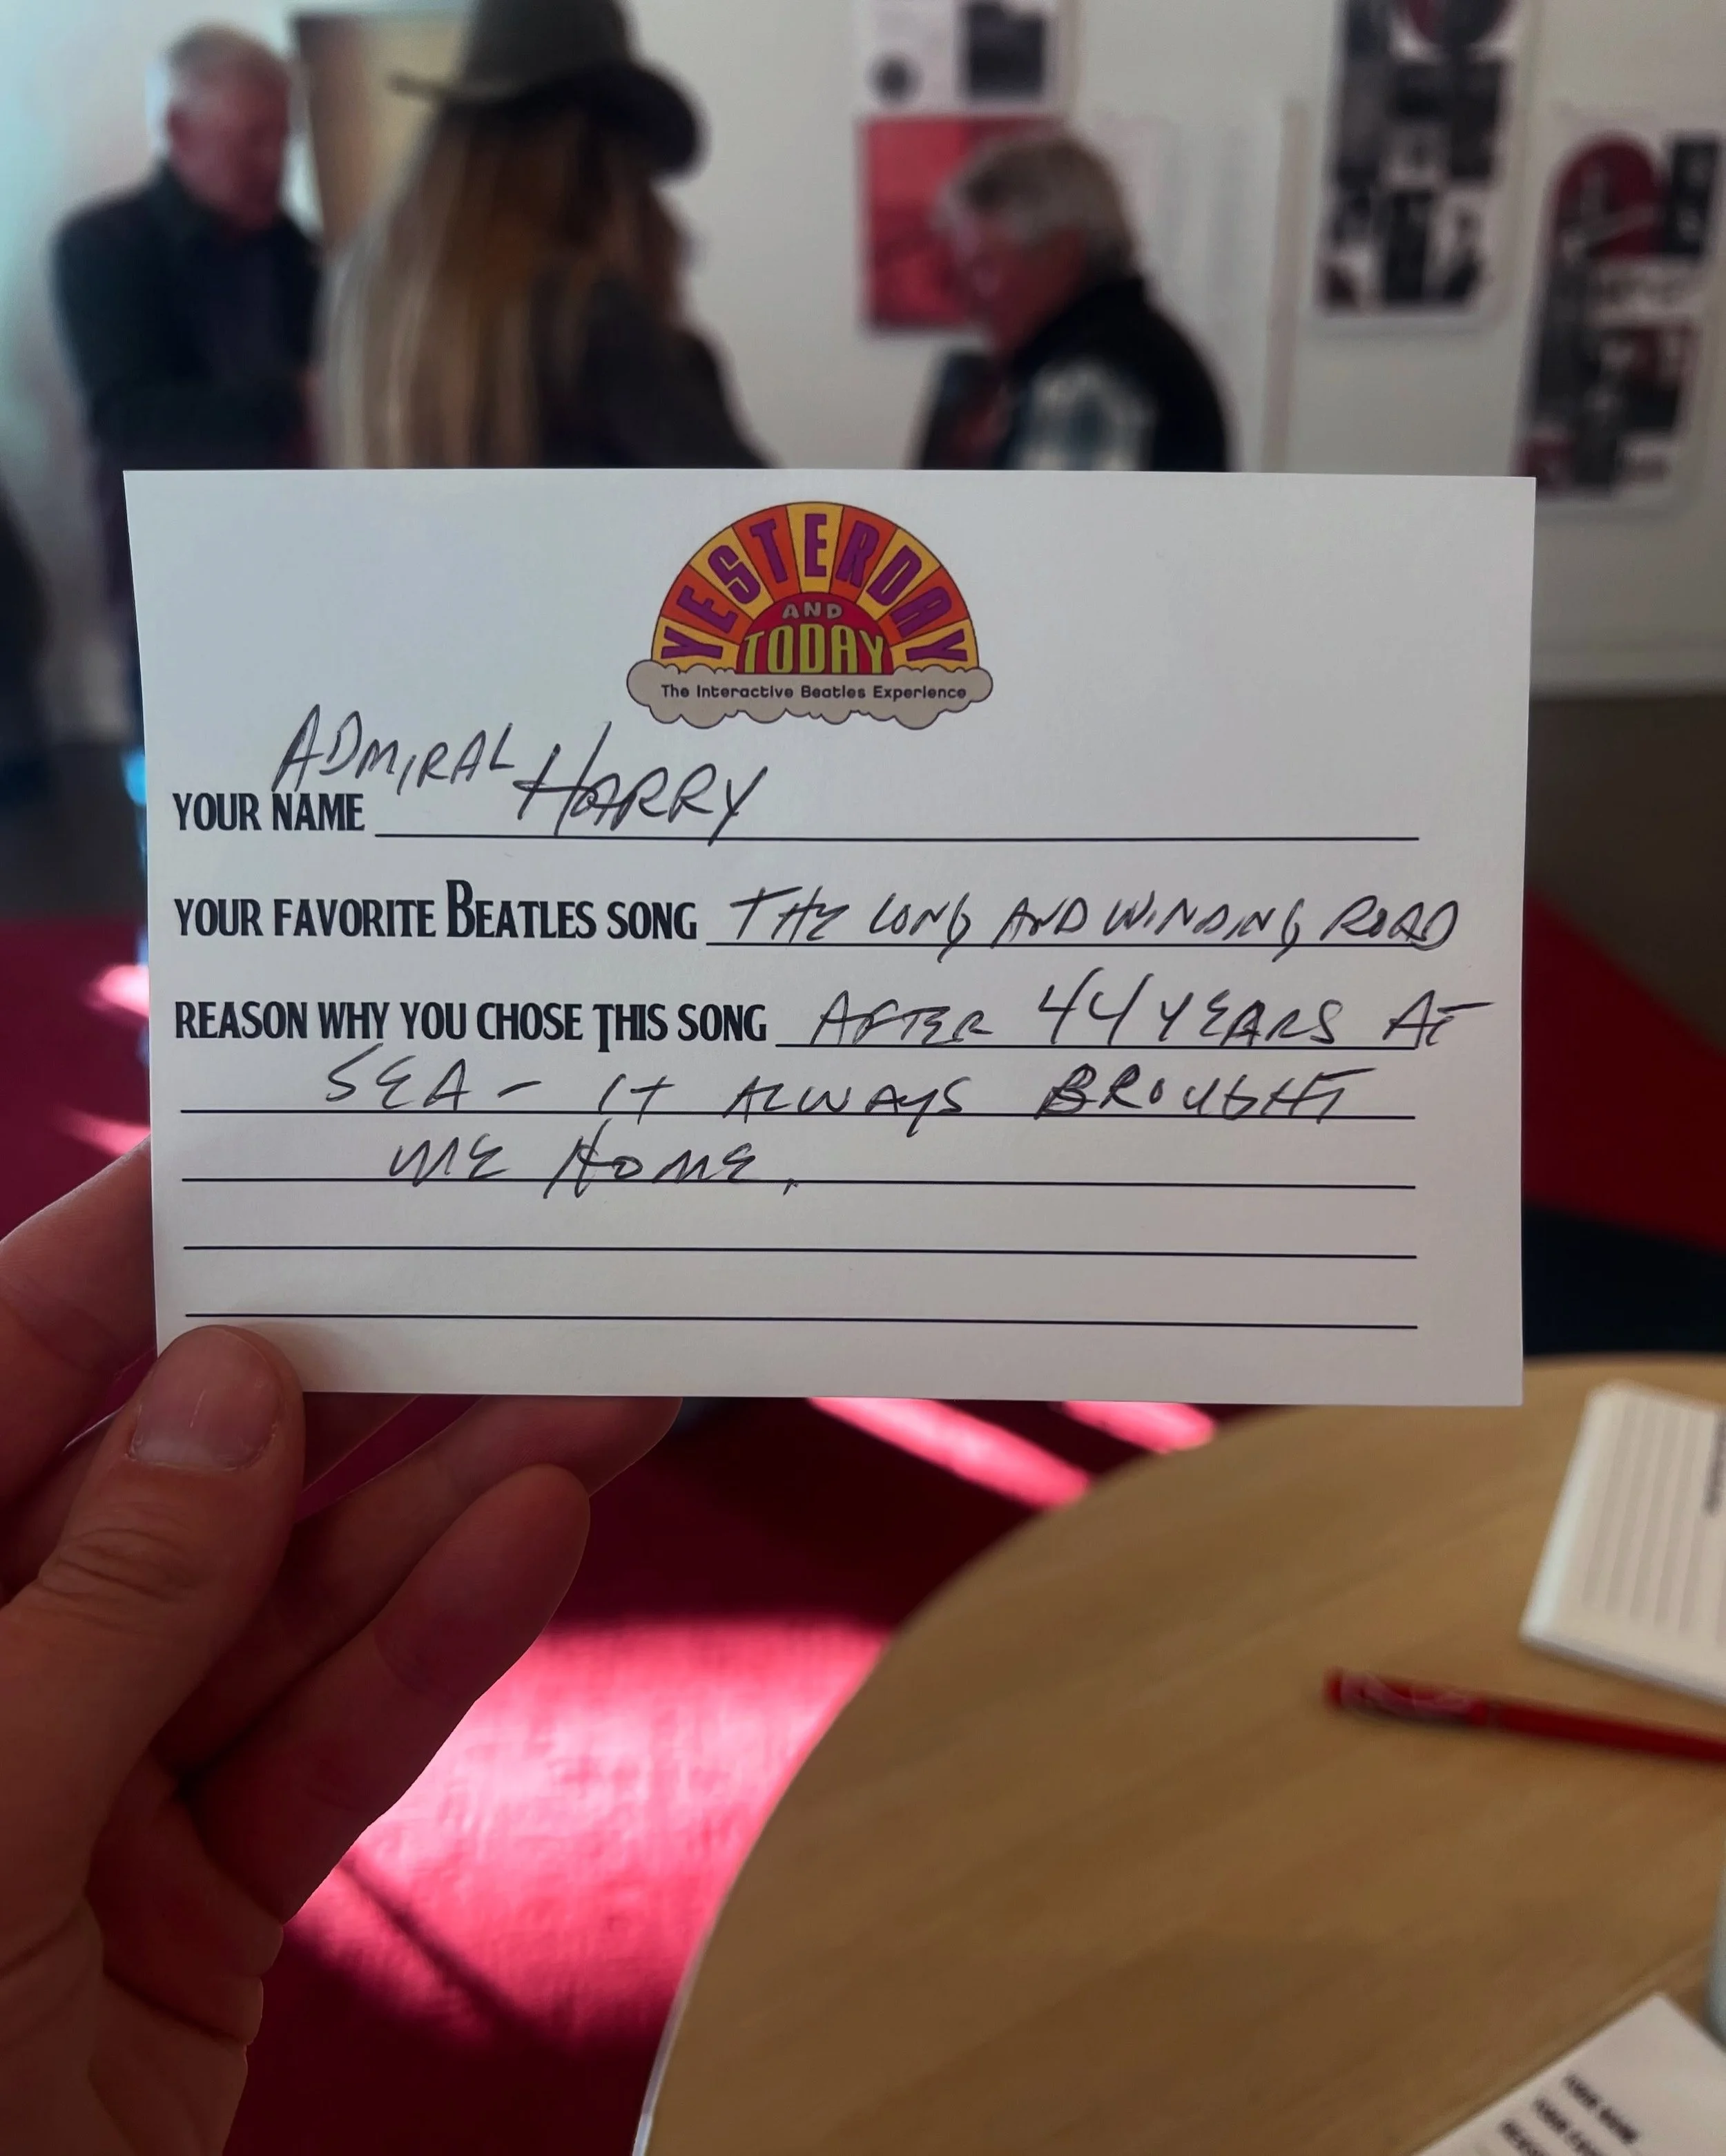 YESTERDAY
AND
TODAY
The Interactive Beatles Experience
YOUR NAME ADMIRAL HARRY
YOUR FAVORITE BEATLES SONG THE LONG AND WINDING ROAD
REASON WHY YOU CHOSE THIS SONG AFTER 44 YEARS AT
SEA - IT ALWAYS BROUGHT
ME HOME.